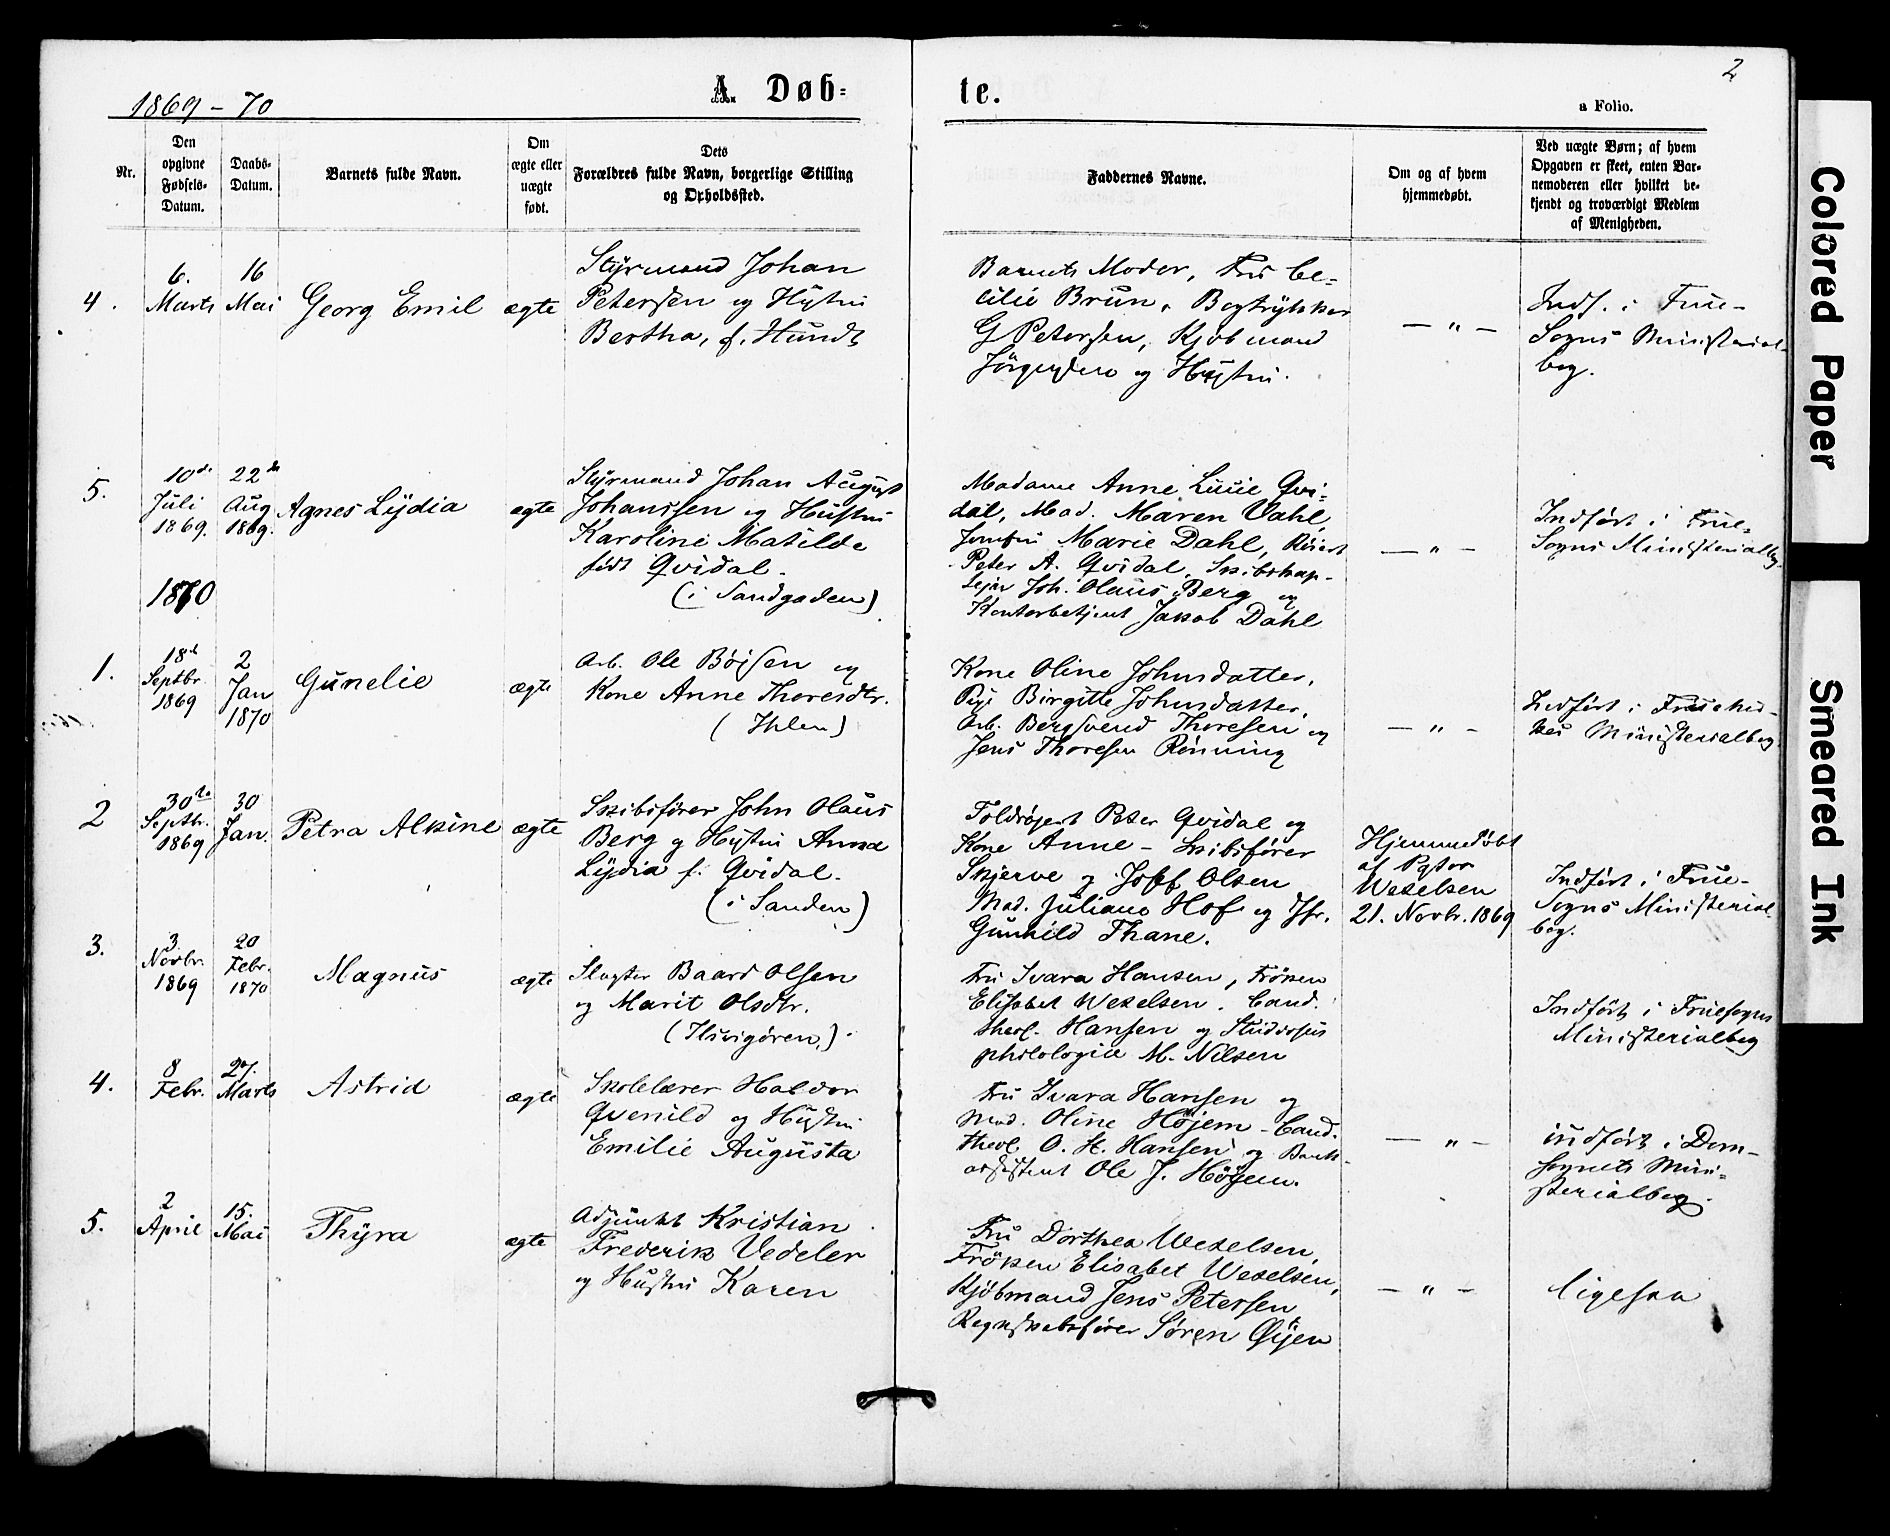 2
1869 - 70
A. Døb-
te.
a Folio.
Nr.
Den
opgivne
Fødsels-
Datum.
Daabs-
Datum.
Barnets fulde Navn.
Om
ægte eller
uægte
født.
Dets
Forældres fulde Navn, borgerlige Stilling
og Opholdssted.
Faddernes Navne.
Om og af hvem
hjemmedøbt.
Ved uægte Børn; af hvem
Opgaven er skeet, enten Bar-
nemoderen eller hvilket be-
kjendt og troværdigt Medlem
af Menigheden.
4.
6.
Marts
16
Mai
Georg Emil
ægte
Styrmand Johan
Petersen og Hustru
Bertha, f. Hundt
Barnets Moder, Fru Ce-
cilie Brun, Bogtrykker
G Petersen, Kjøbmand
Jörgensen og Hustru.
— " —
Indf. i Frue-
Sogns Ministerial-
bog.
5.
10de
Juli
1869.
22de
Aug
1869.
Agnes Lydia
ægte
Styrmand Johan August
Johanssen og Hustru
Karoline Matilde
født Qvidal.
(i Sandgaden)
Madame Anne Lucie Qvi-
dal, Mad. Maren Dahl,
Jomfru Marie Dahl, Röiert
Peter A. Qvidal, Skibskap-
tejn Joh. Olaus Berg og
Kontorbetjent Jakob Dahl
— " —
Indført i Frue-
Sogns Ministerialbog.
1870
1.
18de
Septbr.
1869
2
Jan
1870
Gunelie
ægte
Arb. Ole Böjsen og
Kone Anne Thoresdtr.
(Ihlen)
Kone Oline Johnsdatter,
Pige Birgitte Johnsdatter,
Arb. Bergsvend Thoresen og
Jens Thoresen Rönning
— " —
Indført i Fruekir-
kes Ministerialbog.
2
30te
Septbr.
1869
30
Jan.
Petra Alkine
ægte
Skibsfører John Olaus
Berg og Hustru Anna
Lydia f. Qvidal.
(i Sanden)
Toldröjert Peter Qvidal og
Kone Anne - Skibsfører
Skjerve og Josef Olsen
Mad. Juliane Hof og Jfr.
Gunhild Thane.
Hjemmedøbt
af Pastor
Wexelsen
21. Novbr. 1869
Indført i Frue-
Sogns Ministerial
bog.
3.
3
Novbr.
1869
20
Febr.
1870
Magnus
ægte
Slagter Baard Olsen
og Marit Olsdtr.
(Ilsvigören.)
Fru Ivara Hansen, Frøken
Elisabet Wexelsen. Cand.
theol. Hansen og Studiosus
philologiæ M. Nilsen
Indført i Fruesogns
Ministerialbog
4.
8
Febr.
27.
Marts
Astrid
ægte
Skolelærer Haldor
Qvenild og Hustru
Emilie Augusta
Fru Ivara Hansen og
Mad. Oline Höjem - Cand.
theol. O. H. Hansen og Bank-
assistent Ole J. Höjem.
— " —
indført i Dom-
sognets Mini-
sterialbog.
5.
2
April
15.
Mai
Thyra
ægte
Adjunkt Kristian
Frederik Vedeler
og Hustru Karen
Fru Dorthea Wexelsen,
Fröken Elisabet Wexelsen,
Kjöbmand Jens Petersen
Regnskabsfører Søren Øijen
— " —
ligesaa
Colored Paper
Smeared Ink